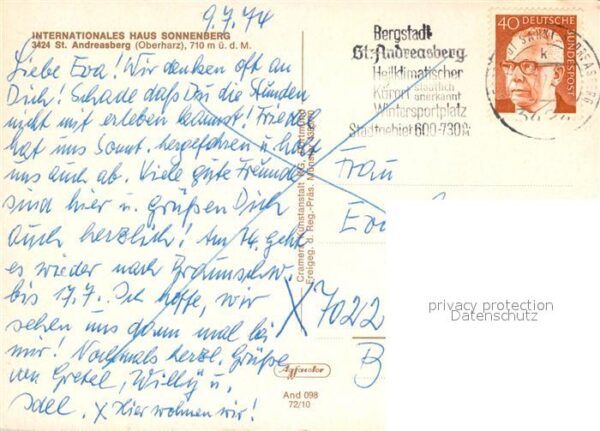 9.7.74
INTERNATIONALES HAUS SONNENBERG
3424 St. Andreasberg (Oberharz), 710 m ü. d. M.
Liebe Eva! Wir denken oft an
Dich! Schade daß Du die Stunden
nicht mit erleben kannst! Frieder
hat uns Sonnt. hergefahren u. holt
uns auch ab. Viele gute Freunde
sind hier u. grüßen Dich
auch herzlich! Am 14. geht
es wieder nach Braunschw.
bis 17.7. Ich hoffe, wir
sehen uns dann mal bei
mir! Nochmals herzl. Grüße
von Gretel, Willy u.
X Hier wohnen wir!
Cramers Kunstanstalt KG, Dortmund
Freigeg. d. Reg.-Präs. Münster
Agfacolor
And 098
72/10
Bergstadt
St. Andreasberg
Heilklimatischer
Kurort staatlich anerkannt
Wintersportplatz
Stadtgebiet 600-730 m
40 DEUTSCHE
BUNDESPOST
Frau
X 7022
privacy protection
Datenschutz